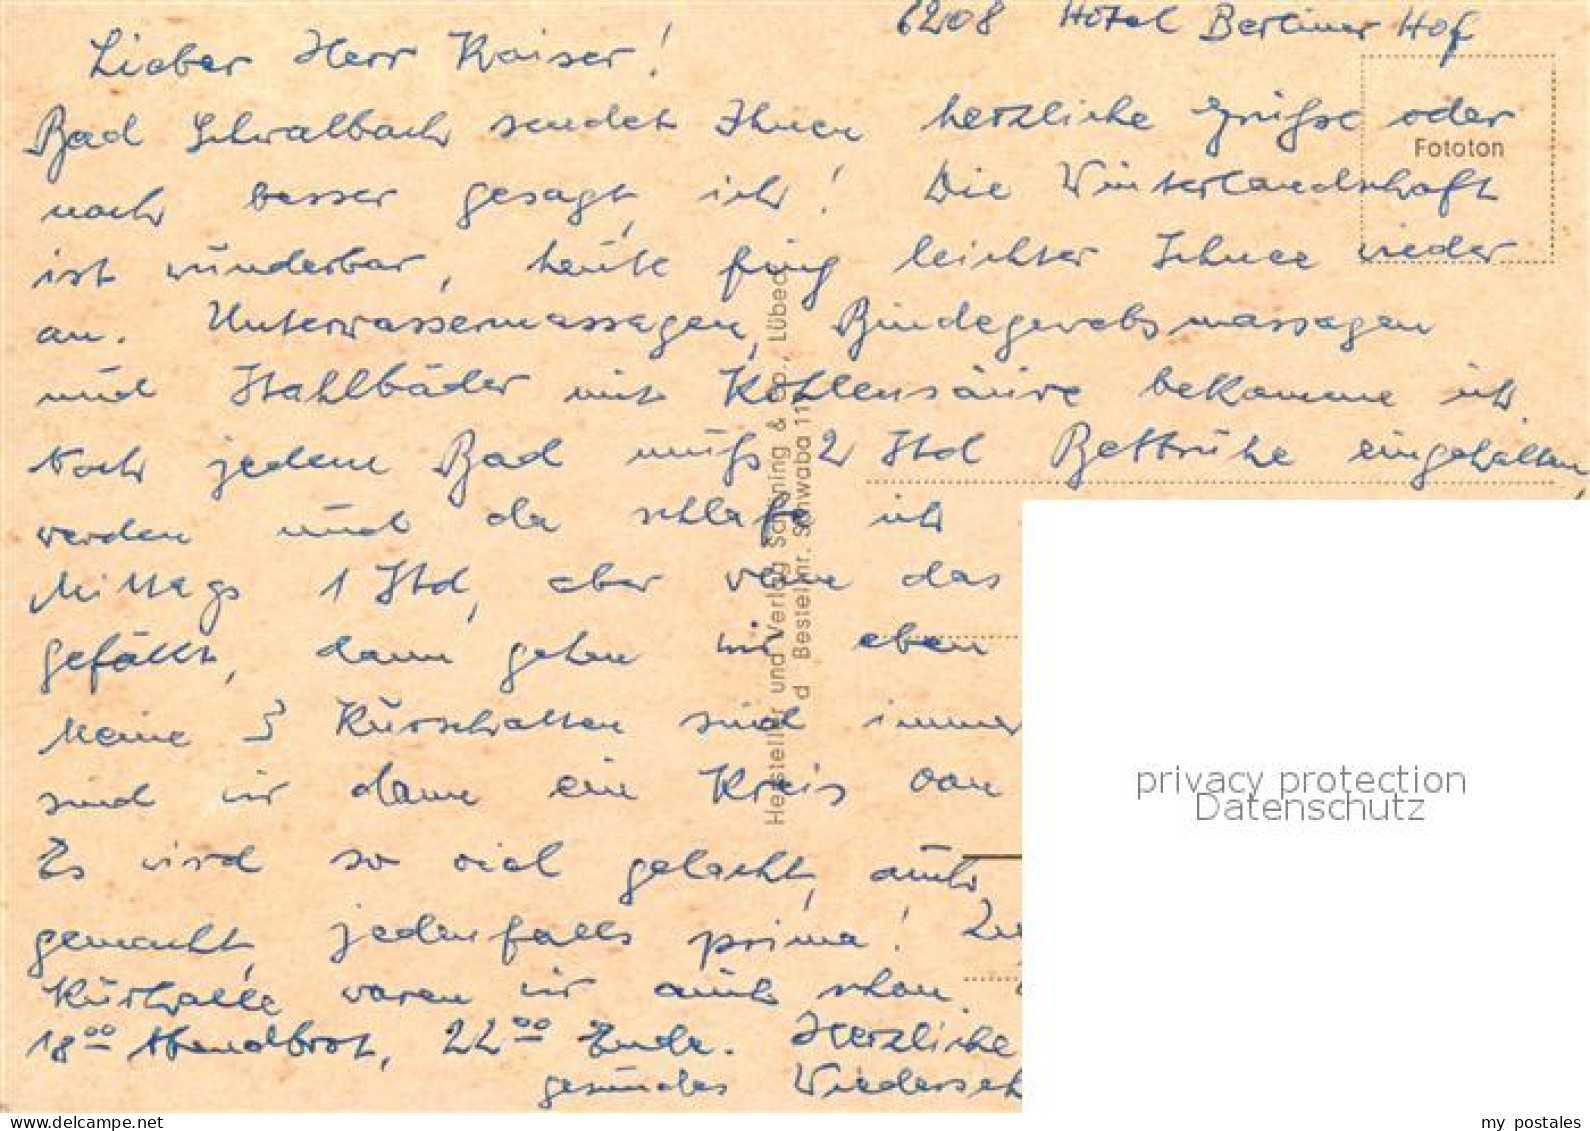 6208 Hotel Berliner Hof
Lieber Herr Kaiser!
Bad Schwalbach sendet Ihnen herzliche Grüße oder
noch besser gesagt, ich! Die Winterlandschaft
ist wunderbar, heute fing leichter Schnee wieder
an. Unterwassermassagen, Bindegewebsmassagen
und Stahlbäder mit Kohlensäure bekomme ich.
Nach jedem Bad muß 2 Std Bettruhe eingehalten
werden und da schlafe ich
Mittags 1 Std, aber wenn das
gefällt, dann gehen wir eben
Meine 3 Kurschatten sind immer
sind wir dann ein Kreis von
Es wird so viel gelacht, auch
gemacht, jedenfalls prima!
Kurhalle waren wir auch schon
18⁰⁰ Abendbrot, 22⁰⁰ Ende. Herzliche
gesundes Wiederseh
Fototon
Hersteller und Verlag Schöning & Co., Lübeck
d Bestellnr. Schwaba 11
privacy protection
Datenschutz
my postales